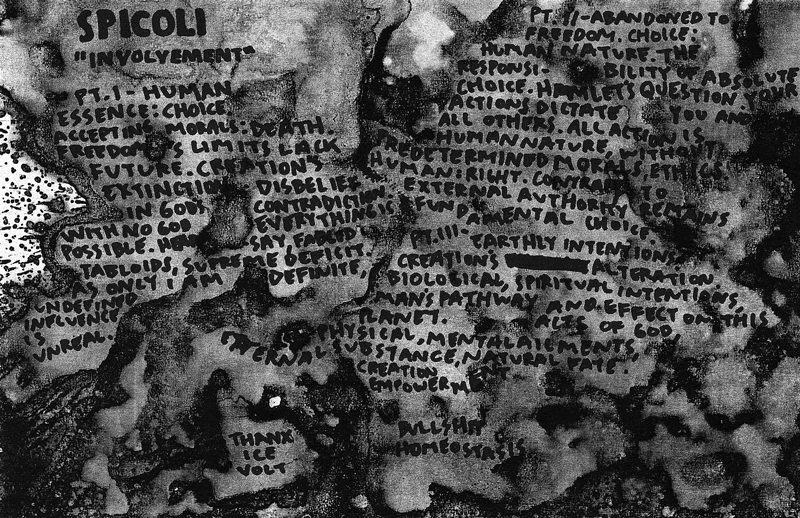 SPICOLI
"INVOLVEMENT"
PT. I - HUMAN
ESSENCE: CHOICE
ACCEPTING MORALS: DEATH.
FREEDOM'S LIMITS LACK
FUTURE. CREATION'S
EXTINCTION - DISBELIEF
IN GODS CONTRADICTION,
WITH NO GOD EVERYTHING IS
POSSIBLE. HEAR SAY, FABLED
TABLOIDS, SUPREME DEFICIT.
AS ONLY I AM DEFINITE,
UNDEFINED
INFLUENCE
IS
UNREAL.
PT. II - ABANDONED TO
FREEDOM. CHOICE:
HUMAN NATURE. THE
RESPONSI- BILITY OF ABSOLUTE
CHOICE. HAMLET'S QUESTION. YOUR
ACTIONS DICTATE YOU AND
ALL OTHERS. ALL ACTION IS
HUMAN NATURE, WITHOUT
PREDETERMINED MORALS, ETHICS.
HUMAN: RIGHT. CONTRARY TO
EXTERNAL AUTHORITY REMAINS
FUNDAMENTAL CHOICE.
PT. III - EARTHLY INTENTIONS.
CREATIONS ALTERATION.
BIOLOGICAL, SPIRITUAL INTENTIONS,
MANS PATHWAY AND EFFECT ON THIS
PLANET. ACTS OF GOD,
PHYSICAL, MENTAL AILMENTS,
ETHERNAL SUBSTANCE, NATURAL FATE.
CREATION
EMPOWERMENT.
THANX
ICE
VOLT
BULLSHIT
HOMEOSTASIS